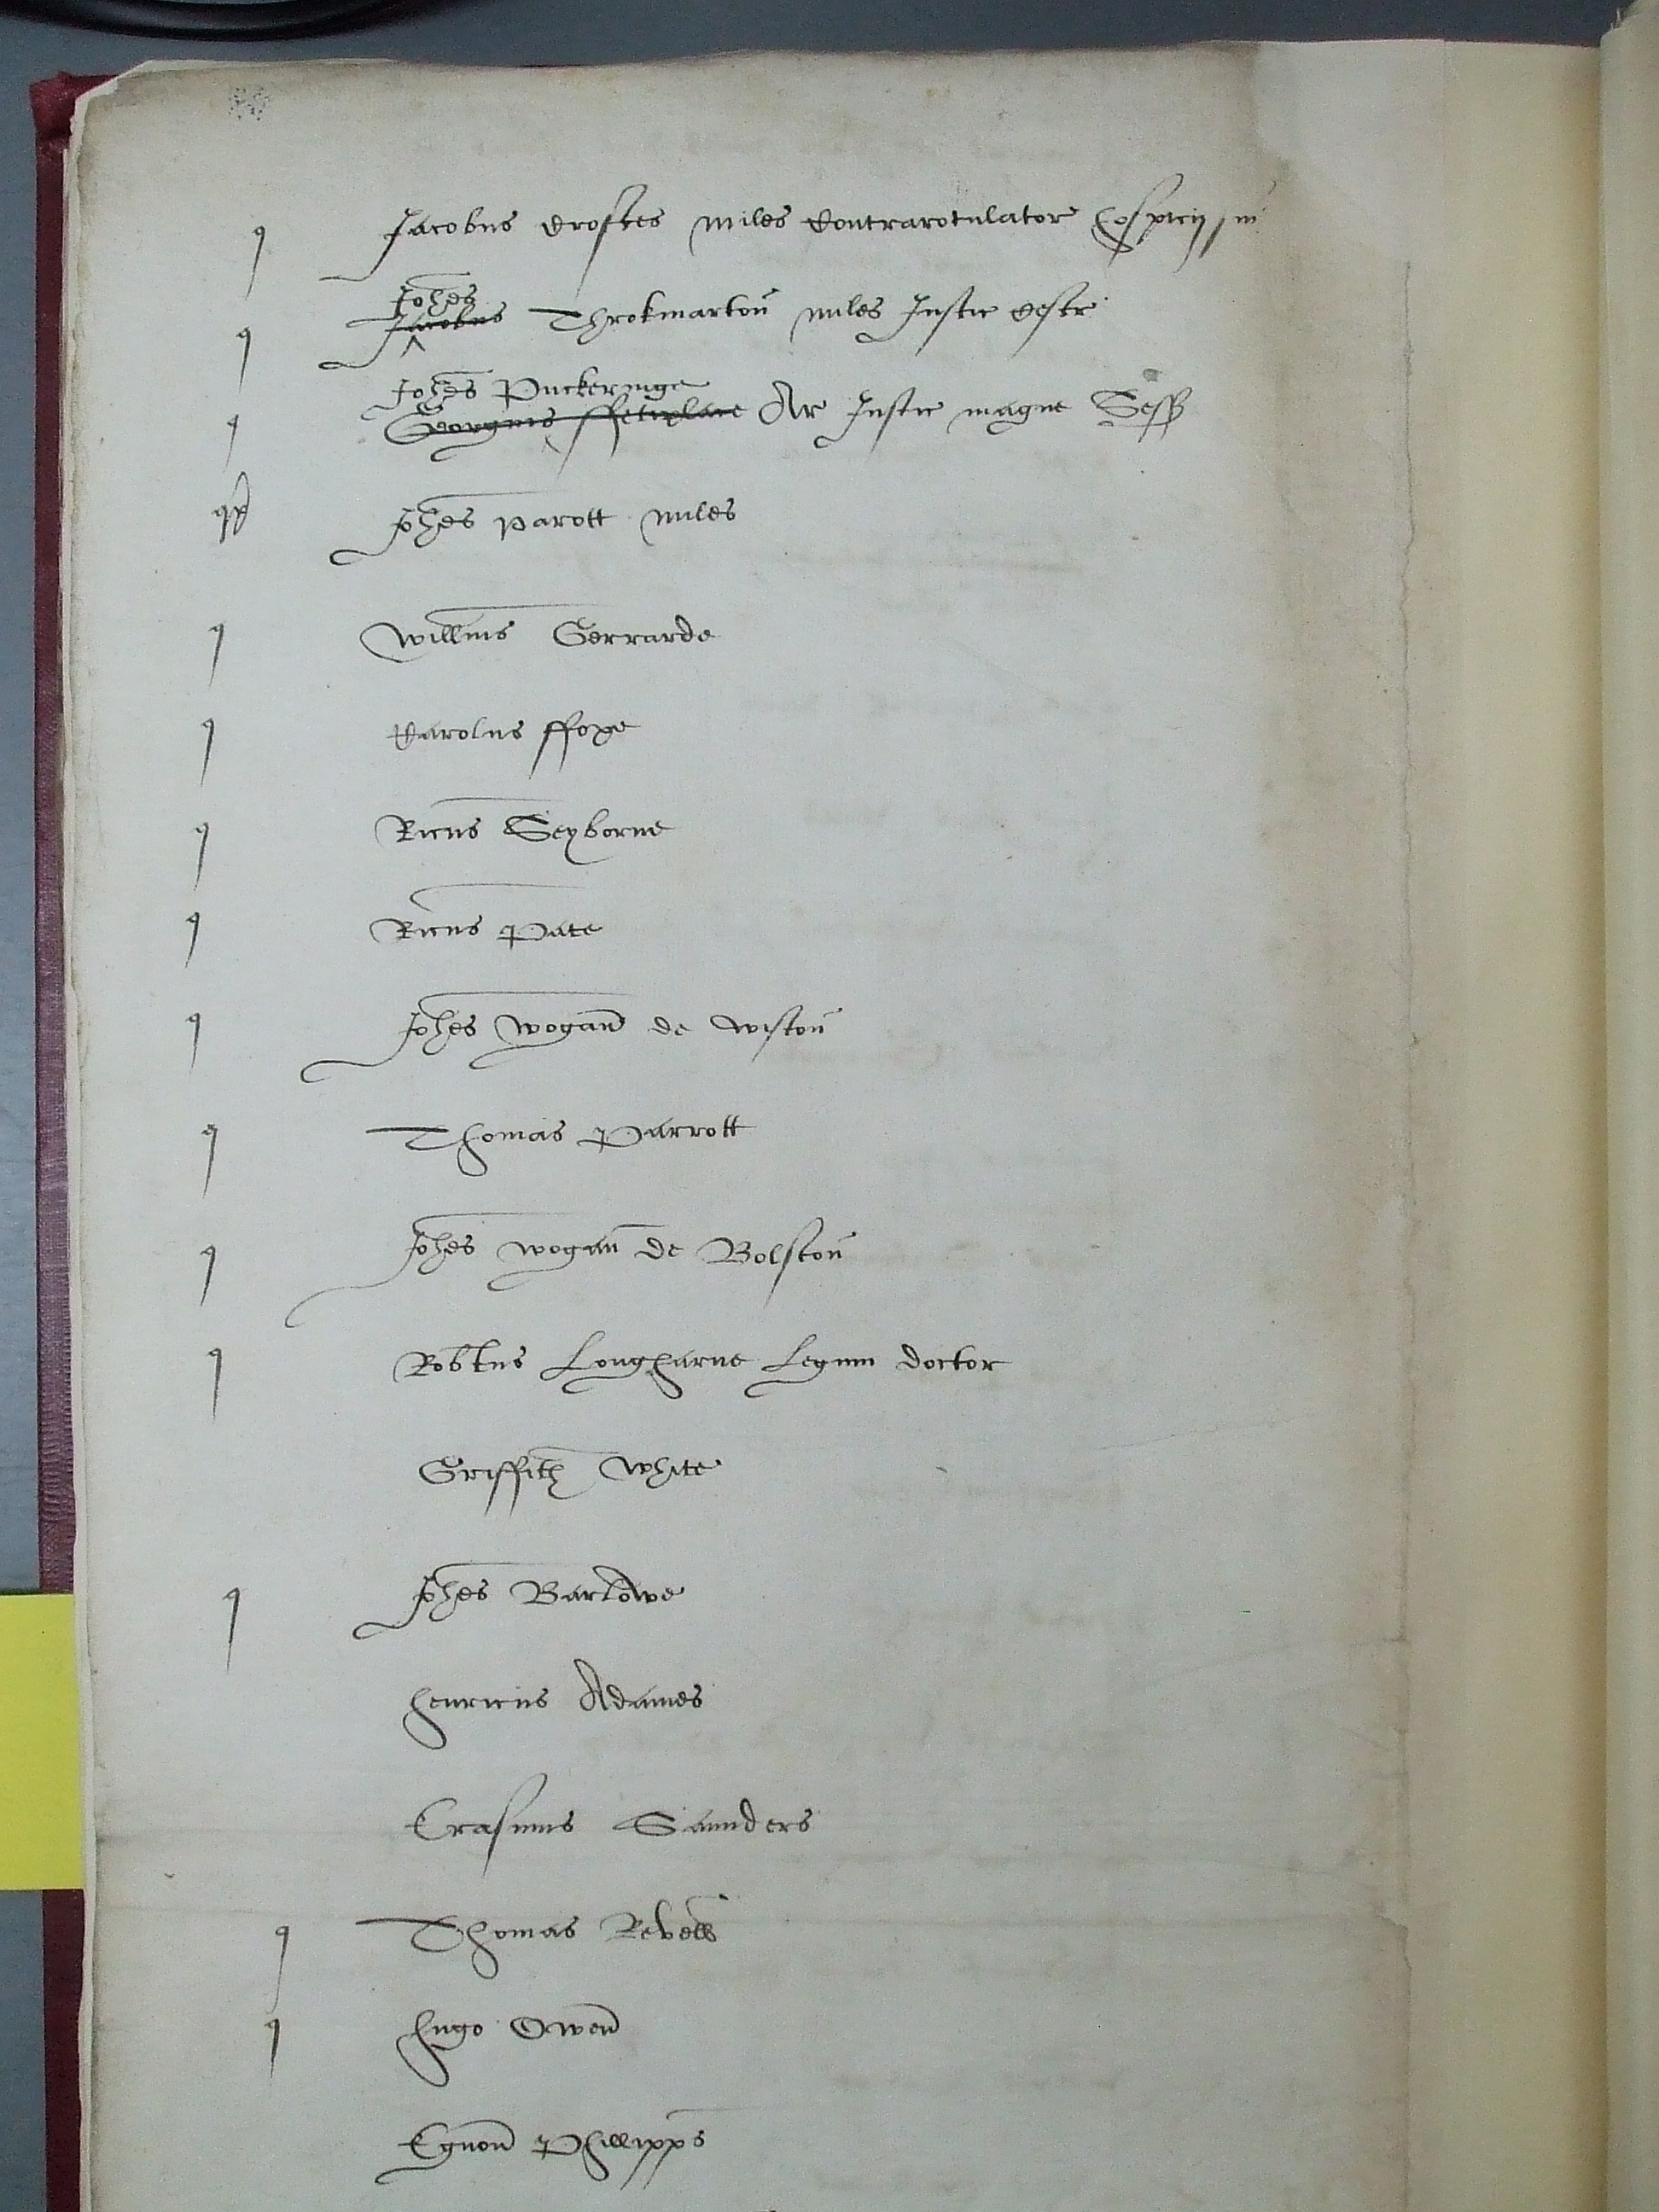 q Jacobus Croftes miles Contrarotulator hospicij
Johes
q Jacobus Throkmarton miles Justic Cestr
Johes Puckeringe
q Georgius ffetiplace Ar Justic magne Sess
Johes Parott miles
q Willms Gerrarde
q Carolus ffoxe
q Ricus Seyborne
q Ricus Pate
q Johes Wogan de Wiston
q Thomas Parrott
q Johes Wogan de Bolston
q Robtus Longharne Legum doctor
Griffith White
q Johes Barlowe
Henricus Adames
Erasmus Saunders
q Thomas Revell
q Hugo Owen
Egnon Phillipps